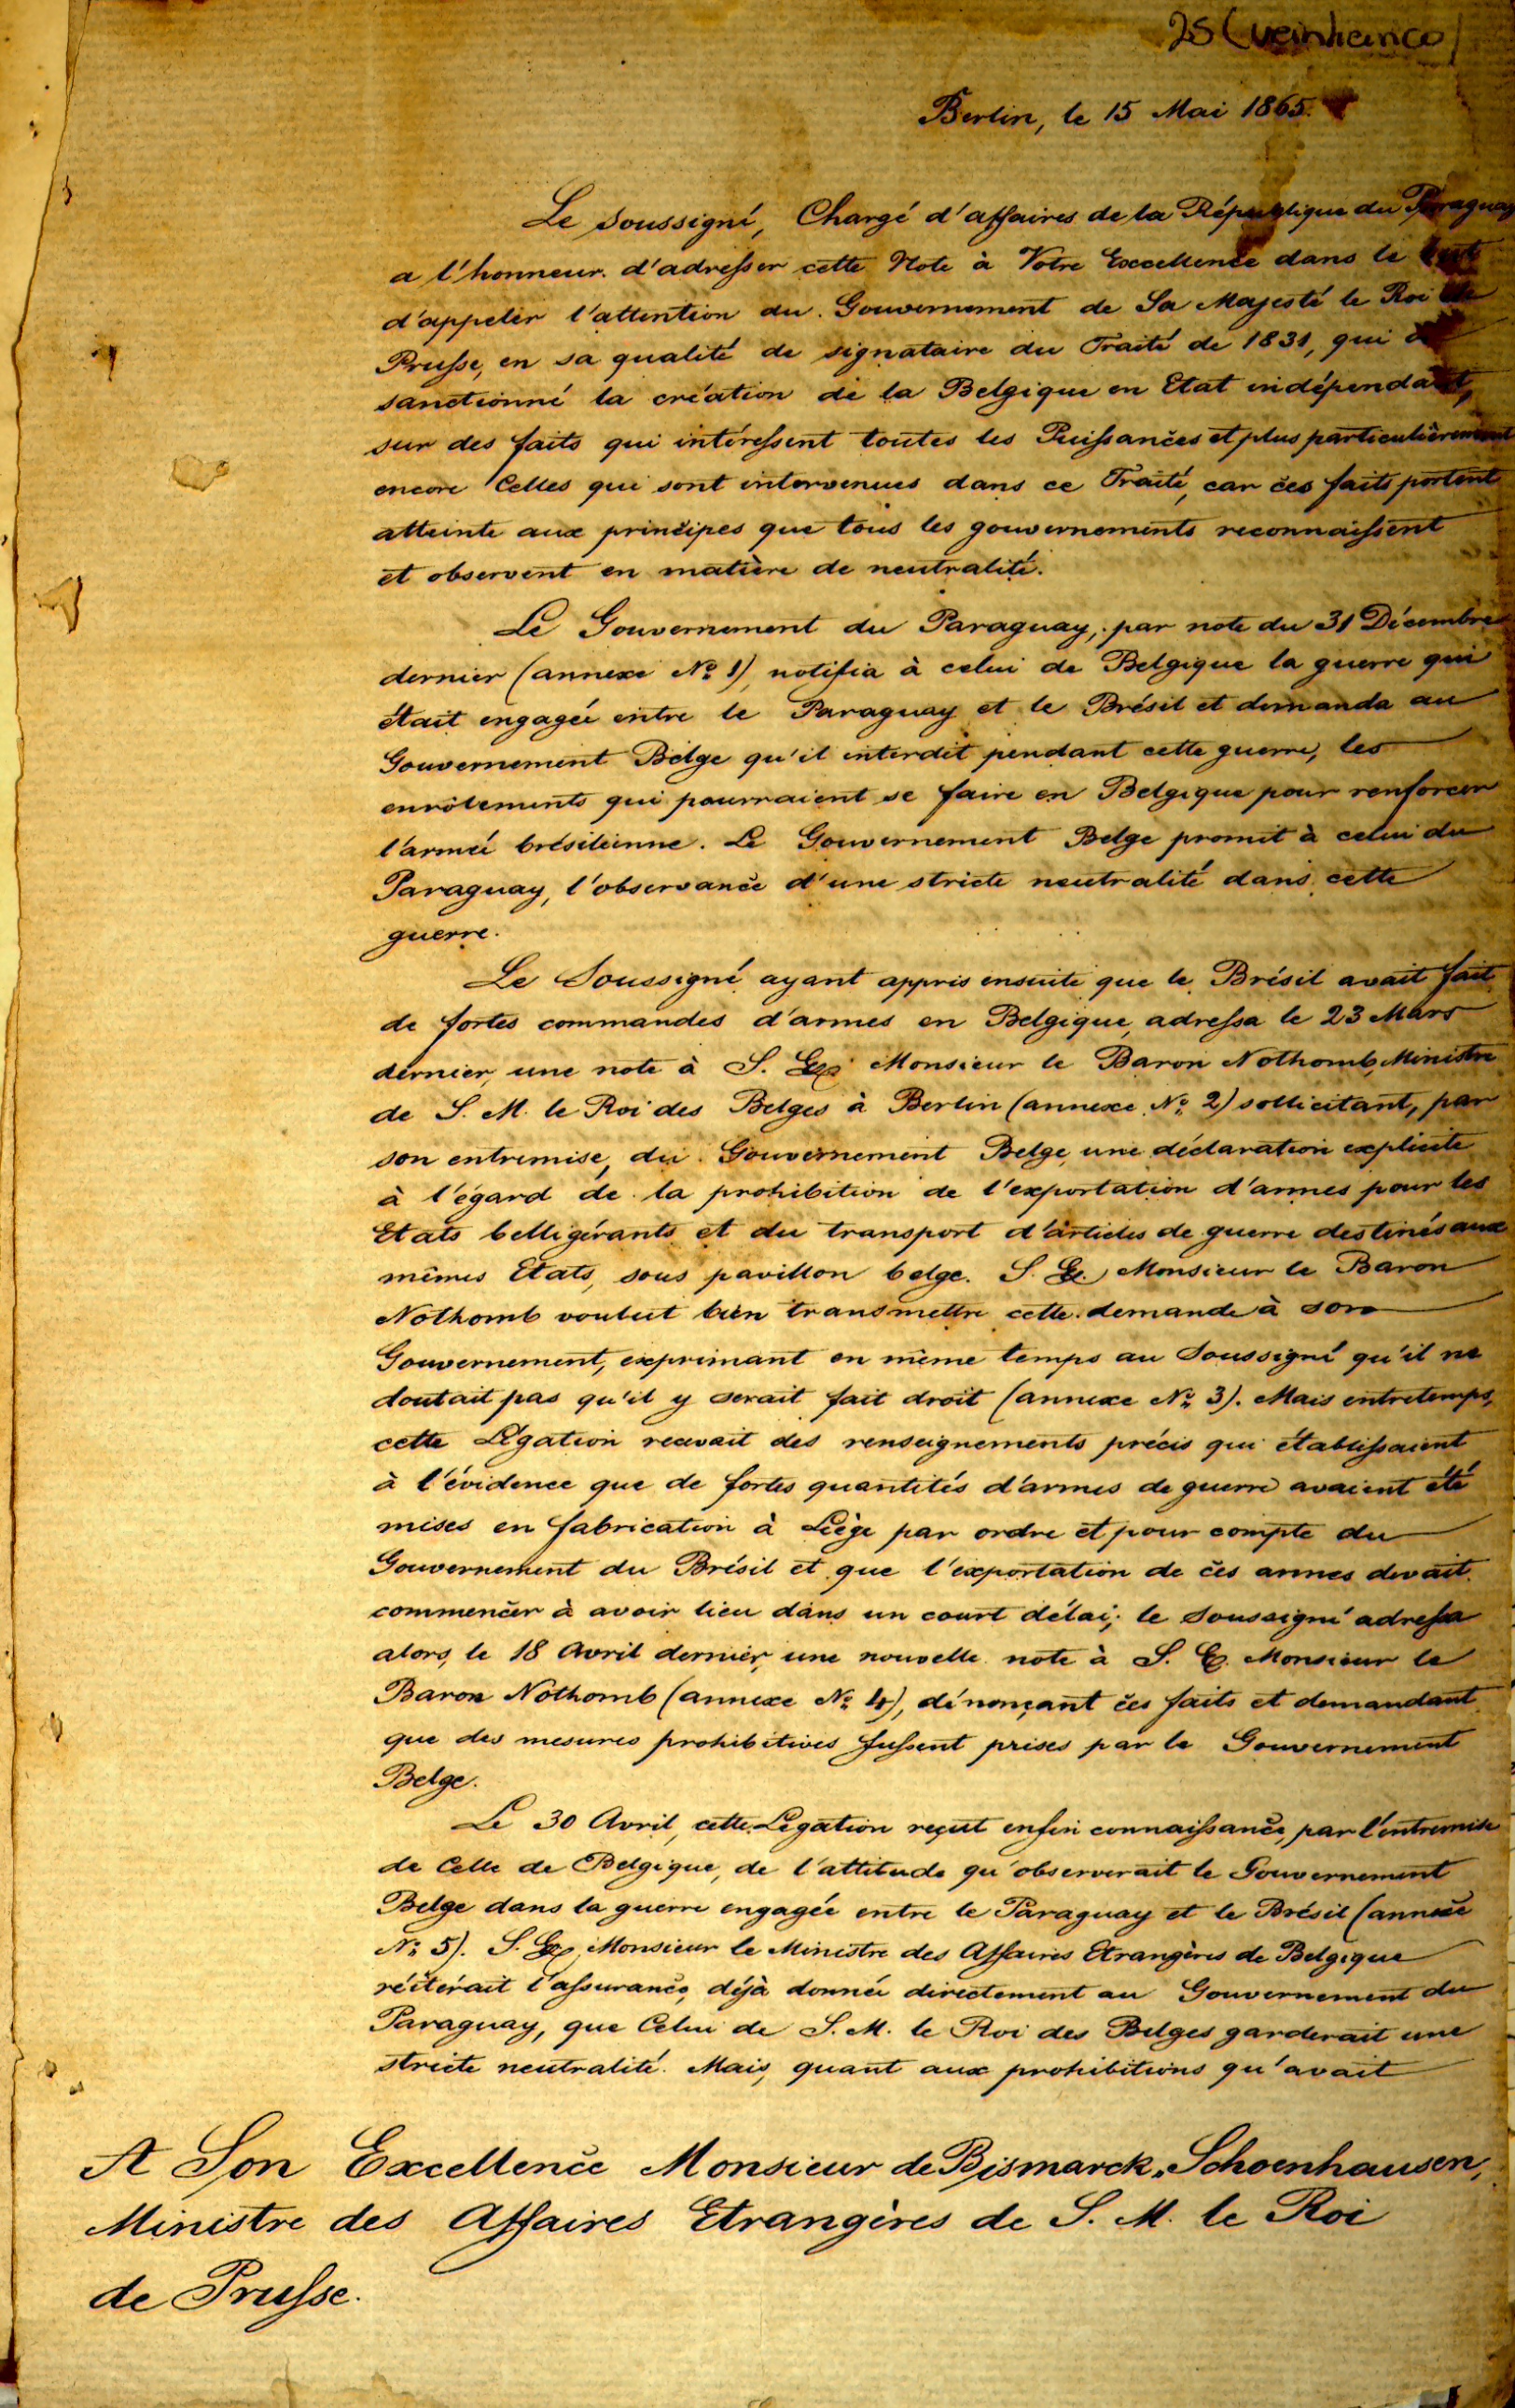 25 (veinticinco)
Berlin, le 15 Mai 1865.
Le soussigné, Chargé d'affaires de la République du Paraguay
a l'honneur d'adresser cette Note à Votre Excellence dans le but
d'appeler l'attention du Gouvernement de Sa Majesté le Roi de
Prusse, en sa qualité de signataire du Traité de 1831, qui a
sanctionné la création de la Belgique en Etat indépendant,
sur des faits qui intéressent toutes les Puissances et plus particulièrement
encore Celles qui sont intervenues dans ce Traité, car ces faits portent
atteinte aux principes que tous les gouvernements reconnaissent
et observent en matière de neutralité.
Le Gouvernement du Paraguay, par note du 31 Décembre
dernier (annexe No 1), notifia à celui de Belgique la guerre qui
était engagée entre le Paraguay et le Brésil et demanda au
Gouvernement Belge qu'il interdit pendant cette guerre, les
enrôlements qui pourraient se faire en Belgique pour renforcer
l'armée brésilienne. Le Gouvernement Belge promit à celui du
Paraguay, l'observance d'une stricte neutralité dans cette
guerre.
Le Soussigné ayant appris ensuite que le Brésil avait fait
de fortes commandes d'armes en Belgique, adressa le 23 Mars
dernier, une note à S. Ex. Monsieur le Baron Nothomb, Ministre
de S. M. le Roi des Belges à Berlin (annexe No 2) sollicitant, par
son entremise, du Gouvernement Belge, une déclaration explicite
à l'égard de la prohibition de l'exportation d'armes pour les
Etats belligérants et du transport d'articles de guerre destinés aux
mêmes Etats, sous pavillon belge. S. Ex. Monsieur le Baron
Nothomb voulut bien transmettre cette demande à son
Gouvernement, exprimant en même temps au Soussigné qu'il ne
doutait pas qu'il y serait fait droit (annexe No 3). Mais entretemps,
cette Légation recevait des renseignements précis qui établissaient
à l'évidence que de fortes quantités d'armes de guerre avaient été
mises en fabrication à Liège par ordre et pour compte du
Gouvernement du Brésil et que l'exportation de ces armes devait
commencer à avoir lieu dans un court délai; le Soussigné adressa
alors, le 18 Avril dernier, une nouvelle note à S. E. Monsieur le
Baron Nothomb (annexe No 4), dénonçant ces faits et demandant
que des mesures prohibitives fussent prises par le Gouvernement
Belge.
Le 30 Avril, cette Légation reçut enfin connaissance, par l'entremise
de Celle de Belgique, de l'attitude qu'observerait le Gouvernement
Belge dans la guerre engagée entre le Paraguay et le Brésil (annexe
No 5). S. Ex. Monsieur le Ministre des Affaires Etrangères de Belgique
réitérait l'assurance, déjà donnée directement au Gouvernement du
Paraguay, que Celui de S. M. le Roi des Belges garderait une
stricte neutralité. Mais, quant aux prohibitions qu'avait
A Son Excellence Monsieur de Bismarck-Schoenhausen,
Ministre des Affaires Etrangères de S. M. le Roi
de Prusse.